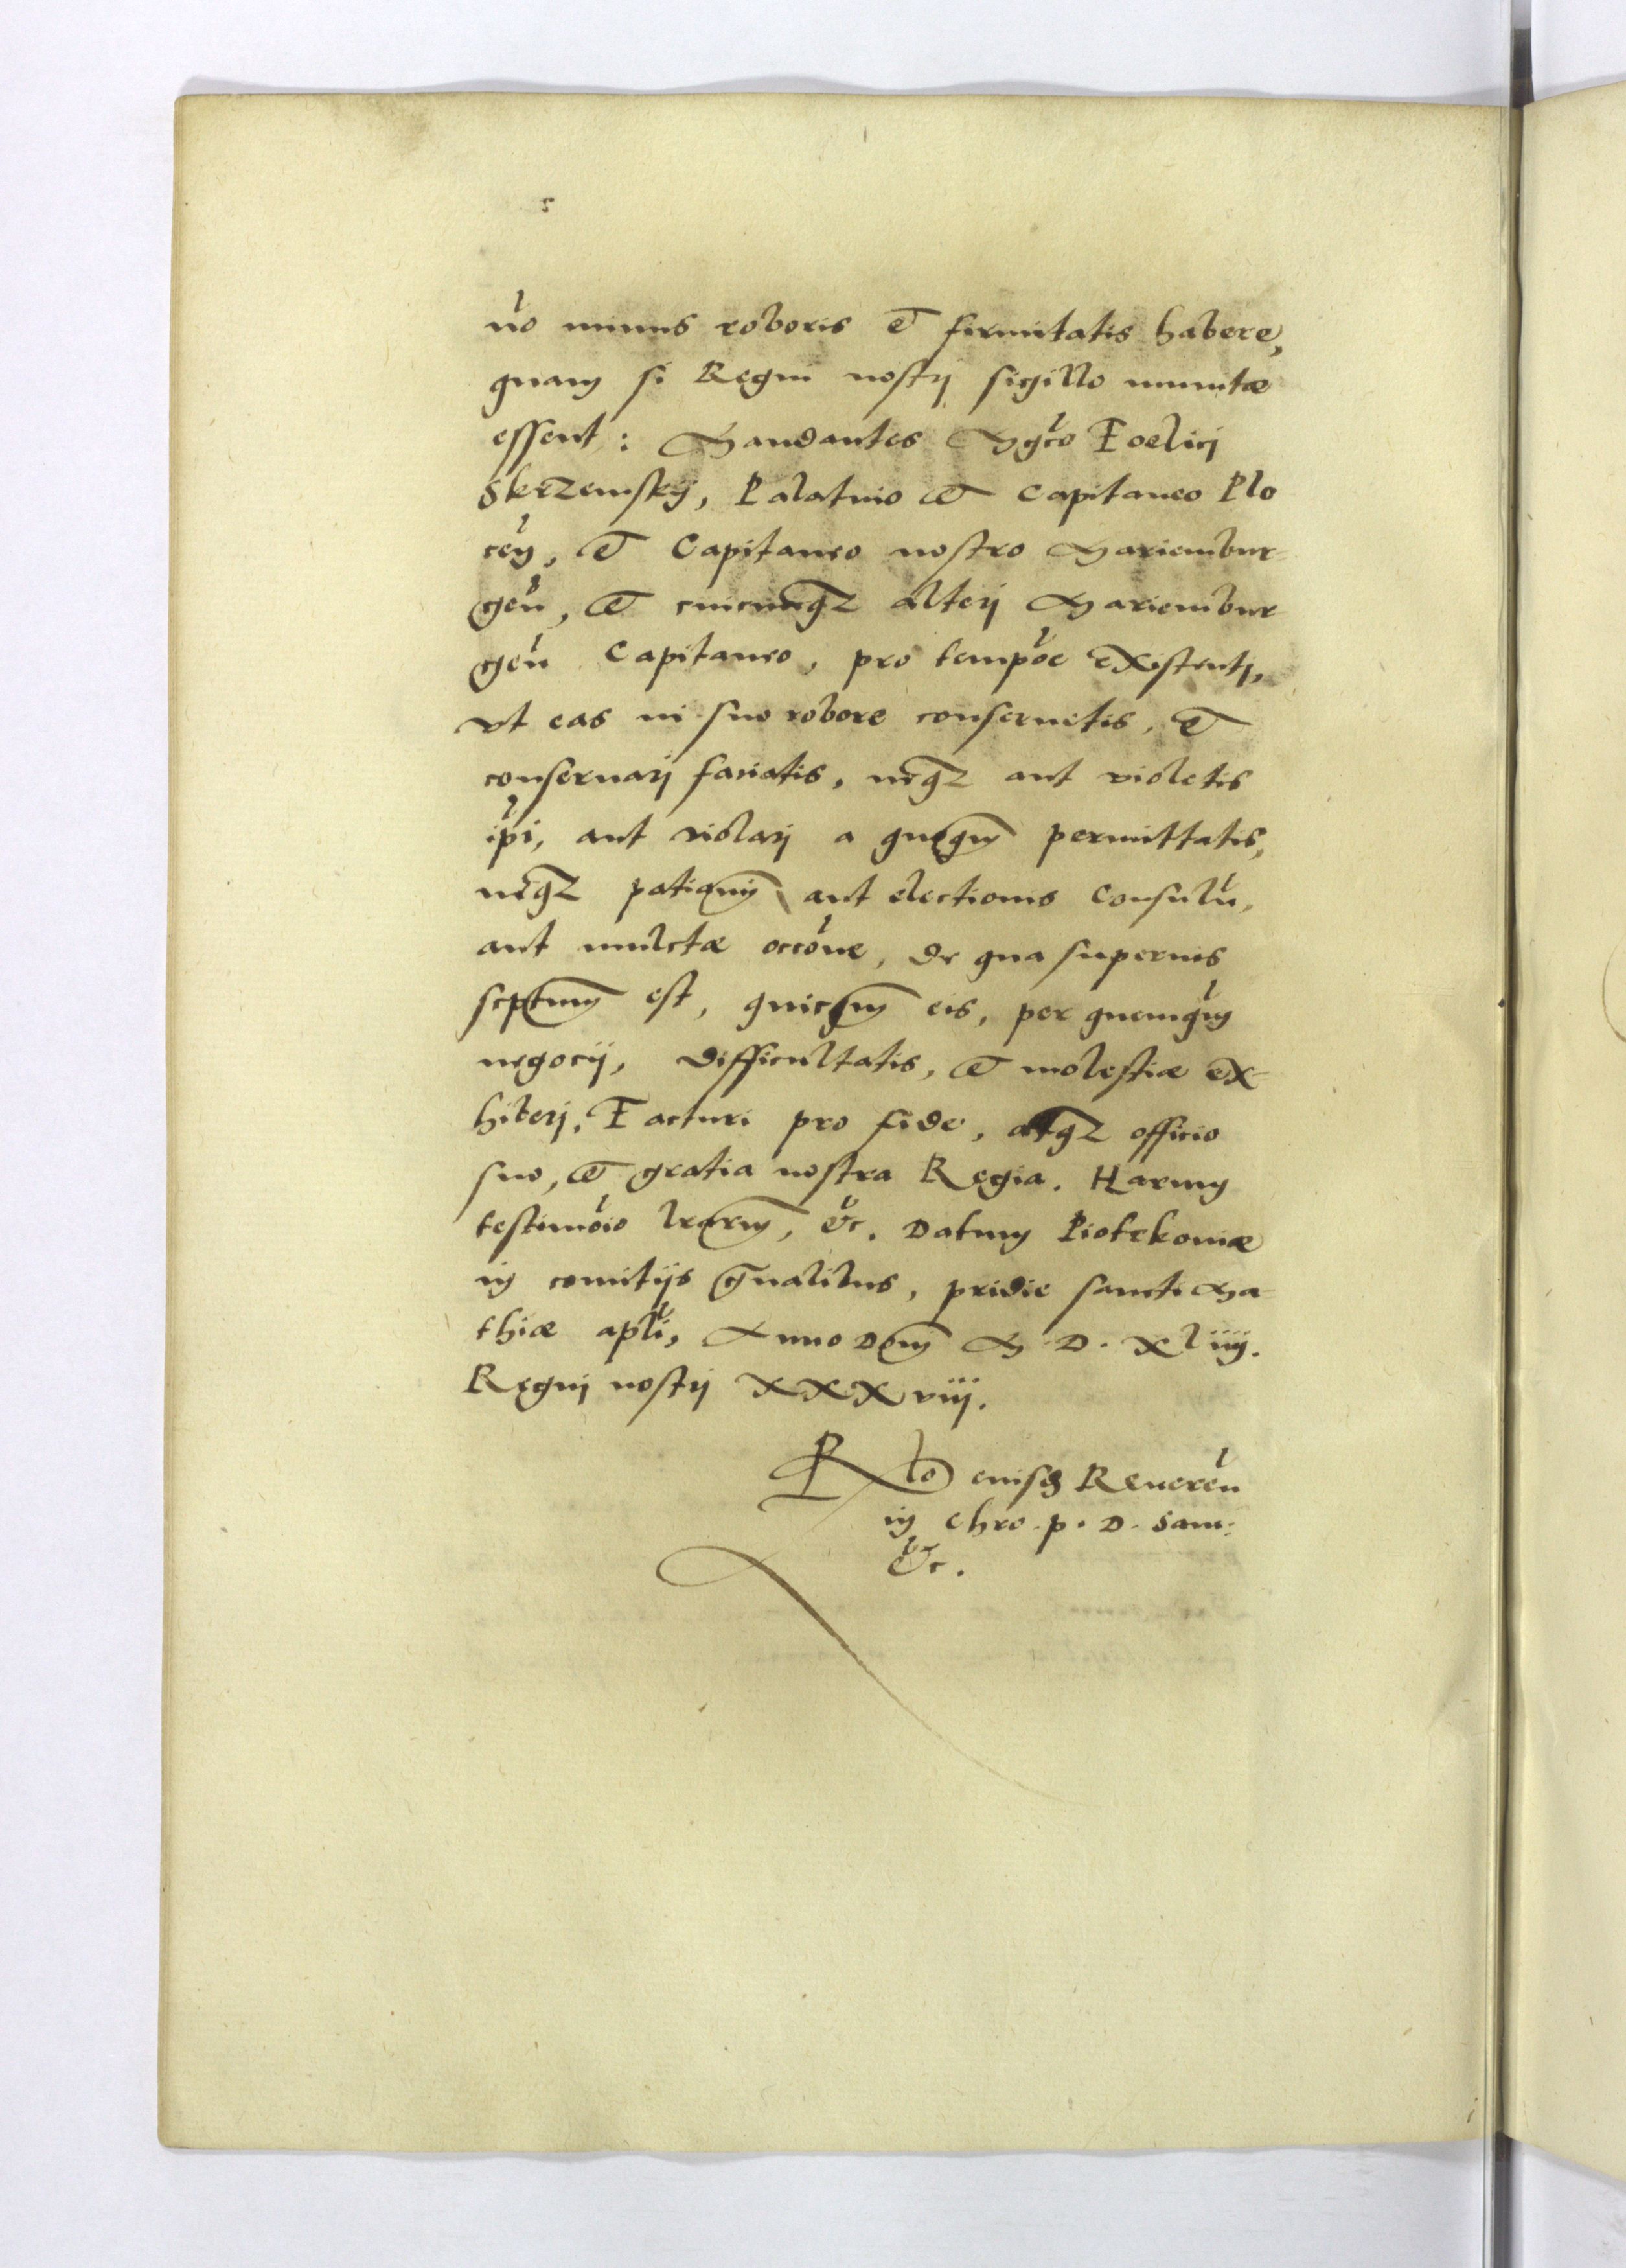 nō minus roboris et firmitatis habere,
quam si Regni nostrj sigillo munitæ
essent: Mandantes Mgco Foelicj
Skrzemskij, Palatino et Capitaneo Plo
ceñ, et Capitaneo nostro Mariembur-
geñ, et cuicunqz alterj Mariembur
geñ Capitaneo, pro tempōe existentj,
vt eas in suo robore conseruetis, et
conseruarj faciatis, neqz aut violetis
ipi, aut violarj a quoqm permittatis,
neqz patiamj aut electionis Consulū,
aut mulctæ occōne, de qua superius
scptum est, quicqm eis, per quemqm
negocij, difficultatis, et molestiæ ex-
hiberj. Facturi pro fide, atqz officio
suo, et gratia nostra Regia. Harum
testimōio lrarum, &c. Datum Piotrkouiæ
in comitijs gnalibus, pridie sancti Ma-
thiæ apli, Anno Dom M. D. Xliiij.
Regnj nostrj XXXviij.
Rlo eiusd Reuereñ
in Chro. p. D. Sam:
&c.